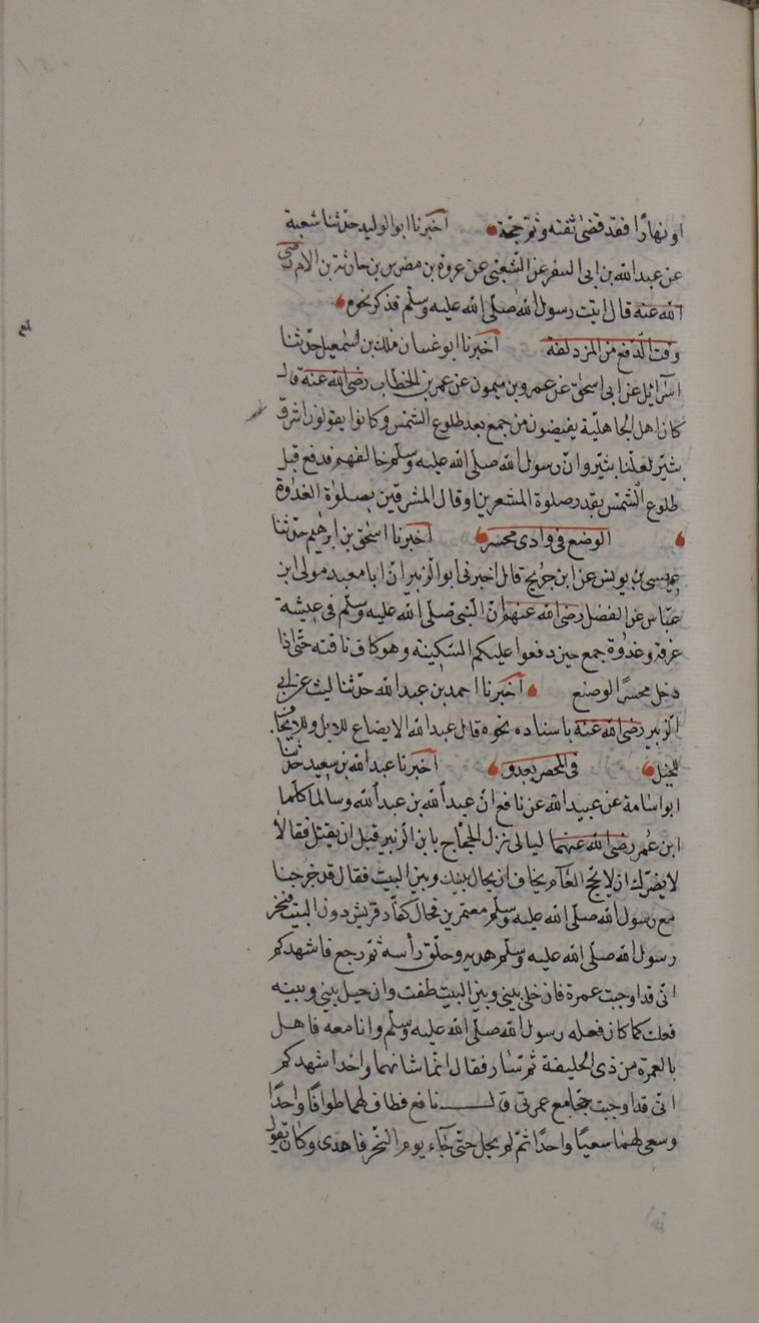 او نهارًا فقد قضى تفثه وتم حجّه اخبرنا ابو الوليد حدّثنا شعبة
عن عبد الله بن ابى السفر عن الشّعبى عن عروة بن مضرس بن حارثة بن لام رضى
الله عنه قال اتيت رسول الله صلّى الله عليه وسلّم فذكر نحوه
وقت الدّفع من المزدلفة اخبرنا ابو غسان ملك بن اسمعيل حدّثنا
اسرائيل عن ابى اسحق عن عمرو بن ميمون عن عمر بن الخطاب رضى الله عنه قال
كان اهل الجاهليّة يفيضون من جمع بعد طلوع الشمس وكانوا يقولون اشرق
بثير لعلّنا وانّ رسول الله صلى الله عليه وسلّم خالفهم فدفع قبل
طلوع الشّمس بقدر صلوة المسفرين او قال المشرقين بصلوة الغدوة
الوضع فى وادى محسر اخبرنا اسحق بن ابرهيم حدّثنا
عيسى بن يونس عن ابن جريج قال اخبرنى ابو الزبير انّ ابا معبد مولى ابن
عبّاس عن الفضل رضى الله عنهم انّ النّبى صلى الله عليه وسلّم فى عيشة
عرفة وغدوة جمع حين دفعوا عليكم السّكينة وهو كاف ناقته حتّى اذا
دخل محسرًا اوضع اخبرنا احمد بن عبد الله حدّثنا ليث عن ابى
الزبير رضى الله عنه باسناده نحوه قال عبد الله الايضاع للابل والايجاف
للخيل فى المحصر بعدو اخبرنا عبد الله بن سعيد حدّثنا
ابو اسامة عن عبيد الله عن نافع انّ عبد الله بن عبد الله وسالمًا كلّما
ابن عمر رضى الله عنهما ليالى نزل الحجّاج بابن الزبير قبل ان يقتل فقالا
لا يضرّك ان لا تحجّ العام نخاف ان يحال بينك وبين البيت فقال قد خرجنا
مع رسول الله صلّى الله عليه وسلّم معتمرين فحال كفّار قريش دون البيت فنحر
رسول الله صلى الله عليه وسلّم هديه وحلّق رأسه ثمّ رجع فاشهدكم
انّى قد اوجبت عمرة فان خلى بينى وبين البيت طفت وان حيل بينى وبينه
فعلت كما كان فعله رسول الله صلّى الله عليه وسلّم وانا معه فاهل
بالعمرة من ذى الحليفة ثمّ سار فقال انّما شانهما واحد اشهدكم
انّى قد اوجبت حجّا مع عمرتى قال نافع فطاف لهما طوافًا واحدًا
وسعى لهما سعيًا واحدًا ثمّ لم يحل حتّى جاء يوم النّحر فاهدى وكان يقول